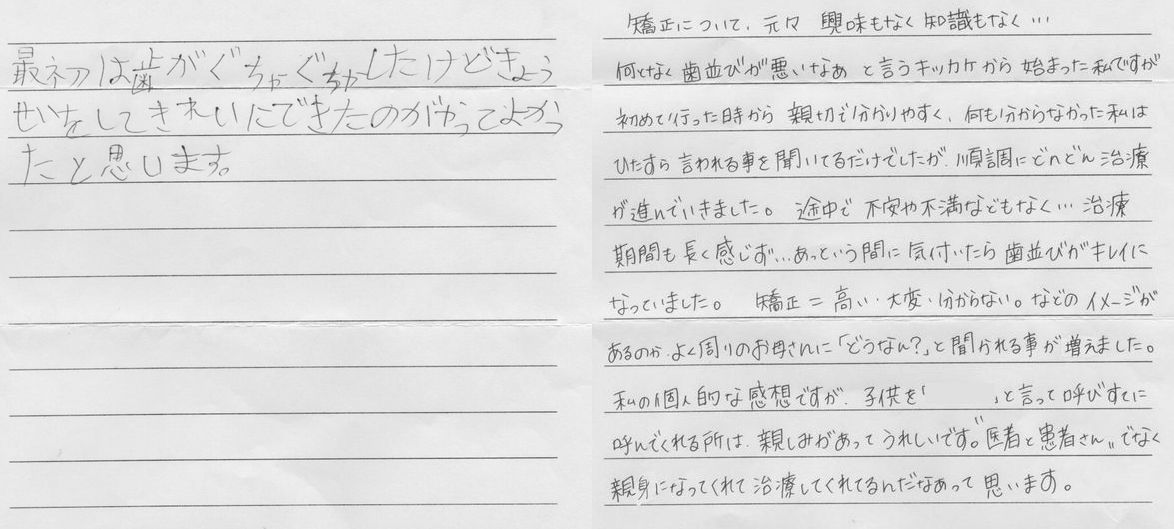 最初は歯がぐちゃぐちゃしたけどきょう
せいをしてきれいにできたのがやってよかっ
たと思います。
矯正について、元々 興味もなく知識もなく…
何となく歯並びが悪いなぁ と言うキッカケから 始まった私ですが
初めて行った時から 親切で分かりやすく、何も分からなかった私は
ひたすら 言われる事を聞いてるだけでしたが、順調にどんどん治療
が進んでいきました。 途中で 不安や不満などもなく… 治療
期間も長く感じず…あっという間に 気付いたら 歯並びがキレイに
なっていました。 矯正=高い・大変・分からない。などの イメージが
あるのか、よく周りのお母さんに「どうなん?」と聞かれる事が増えました。
私の個人的な感想ですが、子供を「 」と言って呼びすてに
呼んでくれる所は、親しみがあって うれしいです。"医者と患者さん"でなく
親身になってくれて 治療してくれてるんだなあって 思います。